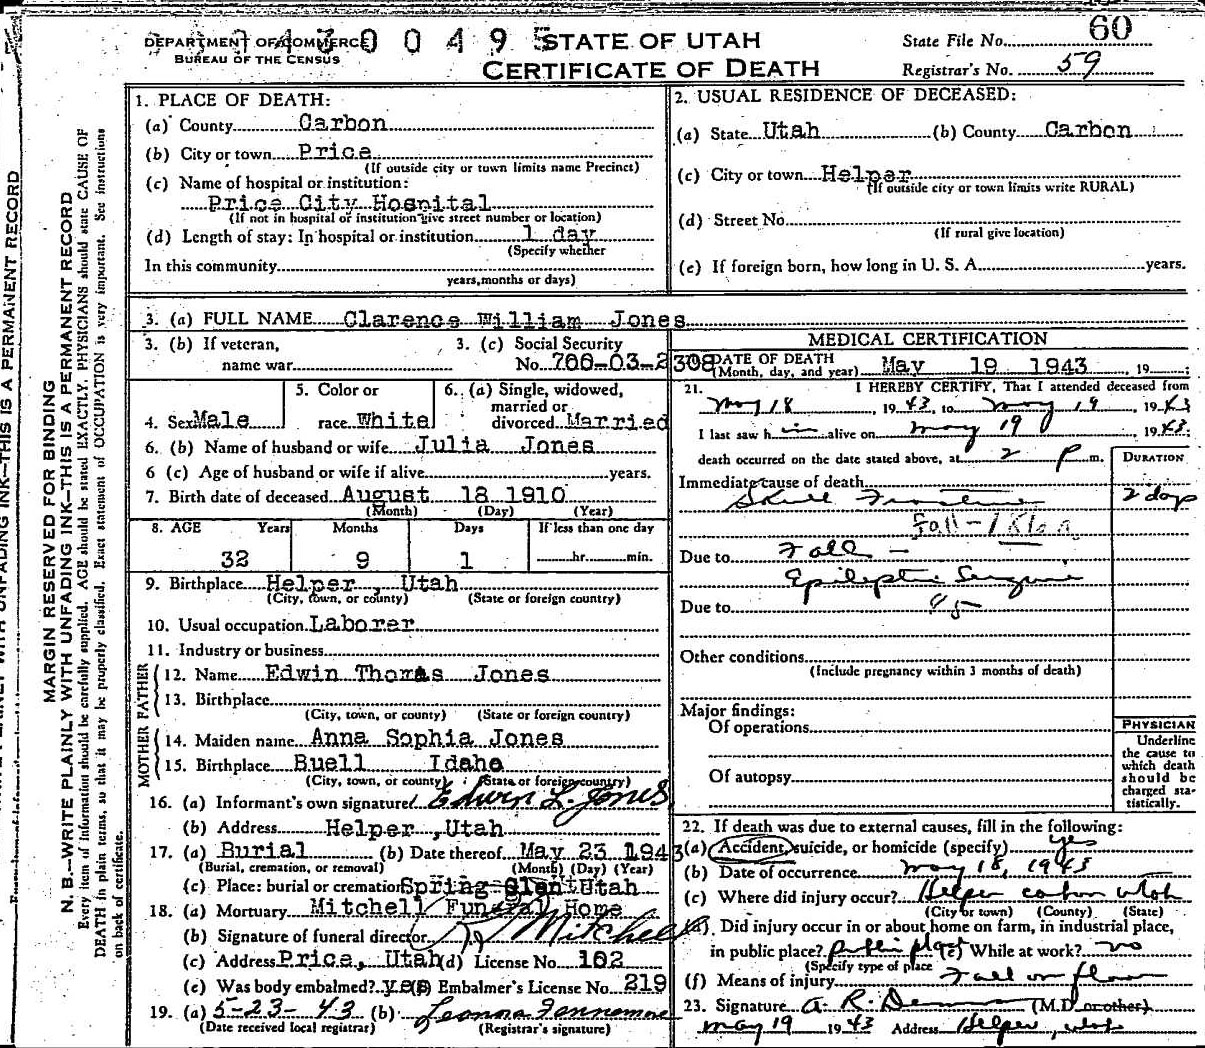 DEPARTMENT OF COMMERCE
BUREAU OF THE CENSUS
430 0495
STATE OF UTAH
CERTIFICATE OF DEATH
State File No. 60
Registrar's No. 59
MARGIN RESERVED FOR BINDING
N. B.—WRITE PLAINLY WITH UNFADING INK—THIS IS A PERMANENT RECORD
Every item of information should be carefully supplied. AGE should be stated EXACTLY. PHYSICIANS should state CAUSE OF
DEATH in plain terms, so that it may be properly classified. Exact statement of OCCUPATION is very important. See instructions
on back of certificate.
1. PLACE OF DEATH:
(a) County Carbon
(b) City or town Price
(If outside city or town limits name Precinct)
(c) Name of hospital or institution:
Price City Hospital
(If not in hospital or institution give street number or location)
(d) Length of stay: In hospital or institution 1 day
(Specify whether
In this community
years, months or days)
2. USUAL RESIDENCE OF DECEASED:
(a) State Utah (b) County Carbon
(c) City or town Helper
(If outside city or town limits write RURAL)
(d) Street No.
(If rural give location)
(e) If foreign born, how long in U. S. A. years.
3. (a) FULL NAME Clarence William Jones
3. (b) If veteran,
name war
3. (c) Social Security
No. 700-03-2308
4. Sex Male
5. Color or
race White
6. (a) Single, widowed,
married or
divorced Married
6. (b) Name of husband or wife Julia Jones
6 (c) Age of husband or wife if alive years.
7. Birth date of deceased August 18 1910
(Month) (Day) (Year)
8. AGE Years Months Days If less than one day
32 9 1 hr. min.
9. Birthplace Helper, Utah
(City, town, or county) (State or foreign country)
10. Usual occupation Laborer
11. Industry or business
FATHER
12. Name Edwin Thomas Jones
13. Birthplace
(City, town, or county) (State or foreign country)
MOTHER
14. Maiden name Anna Sophia Jones
15. Birthplace Buell Idaho
(City, town, or county) (State or foreign country)
16. (a) Informant's own signature Edwin L. Jones
(b) Address Helper, Utah
17. (a) Burial (b) Date thereof May 23 1943
(Burial, cremation, or removal) (Month) (Day) (Year)
(c) Place: burial or cremation Spring Glen Utah
18. (a) Mortuary Mitchell Funeral Home
(b) Signature of funeral director Mitchell
(c) Address Price, Utah (d) License No. 102
(e) Was body embalmed? yes (f) Embalmer's License No. 219
19. (a) 5-23-43 (b) Leonna Fennemore
(Date received local registrar) (Registrar's signature)
MEDICAL CERTIFICATION
DATE OF DEATH
(Month, day, and year) May 19 1943, 19
21. I HEREBY CERTIFY, That I attended deceased from
May 18, 1943, to May 19, 1943
I last saw him alive on May 19 1943
death occurred on the date stated above, at 2 P m.
DURATION
Immediate cause of death
Skull Fracture 2 days
Fall -
Due to Fall -
Epileptic Seizure
85
Due to
Other conditions
(Include pregnancy within 3 months of death)
Major findings:
Of operations
Of autopsy
PHYSICIAN
Underline
the cause to
which death
should be
charged sta-
tistically.
22. If death was due to external causes, fill in the following:
(a) Accident, suicide, or homicide (specify) yes
(b) Date of occurrence May 18, 1943
(c) Where did injury occur? Helper Carbon Utah
(City or town) (County) (State)
(d). Did injury occur in or about home on farm, in industrial place,
in public place? public place (e) While at work? no
(Specify type of place
(f) Means of injury Fall on floor
23. Signature A. R. (M.D. or other)
May 19 1943 Address Helper, Utah